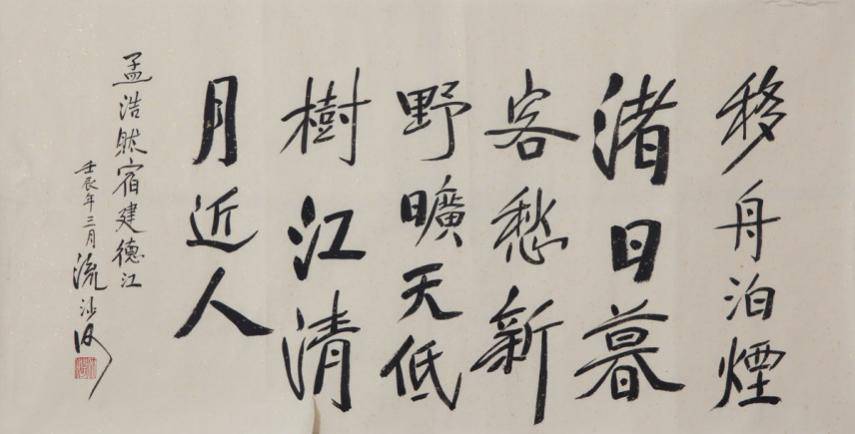 移舟泊煙
渚日暮
客愁新
野曠天低
樹江清
月近人
孟浩然宿建德江
壬辰年三月流沙河